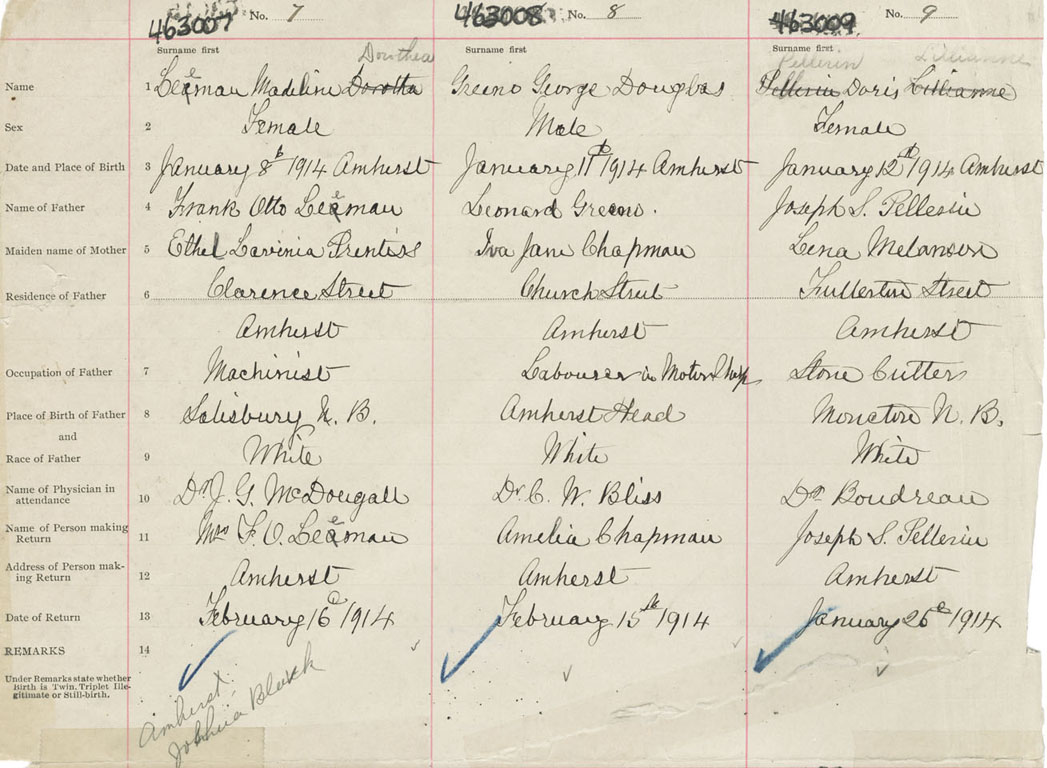 463007 No. 7 463008 No. 8 463009 No. 9
Surname first Surname first Surname first
Dorothea Pellerin Lillianne
Name 1 Leeman Madeline Dorotha Greeno George Douglas Pellerin Doris Lillianne
Sex 2 Female Male Female
Date and Place of Birth 3 January 8th 1914 Amherst January 11th 1914 Amherst January 12th 1914 Amherst
Name of Father 4 Frank Otto Leeman Leonard Greeno. Joseph S. Pellerin
Maiden name of Mother 5 Ethel Lavinia Prentiss Iva Jane Chapman Lena Melanson
Residence of Father 6 Clarence Street Church Street Fullerton Street
Amherst Amherst Amherst
Occupation of Father 7 Machinist Labourer in Motor Shop Stone Cutter
Place of Birth of Father 8 Salisbury N. B. Amherst Head Moncton N. B.
and
Race of Father 9 White White White
Name of Physician in
attendance 10 Dr J. G. McDougall Dr C. W. Bliss Dr Boudreau
Name of Person making
Return 11 Mrs F. O. Leeman Amelia Chapman Joseph S. Pellerin
Address of Person mak-
ing Return 12 Amherst Amherst Amherst
Date of Return 13 February 16th 1914 February 15th 1914 January 26th 1914
REMARKS 14
Under Remarks state whether
Birth is Twin, Triplet Ille-
gitimate or Still-birth.
Amherst
Joshua Black